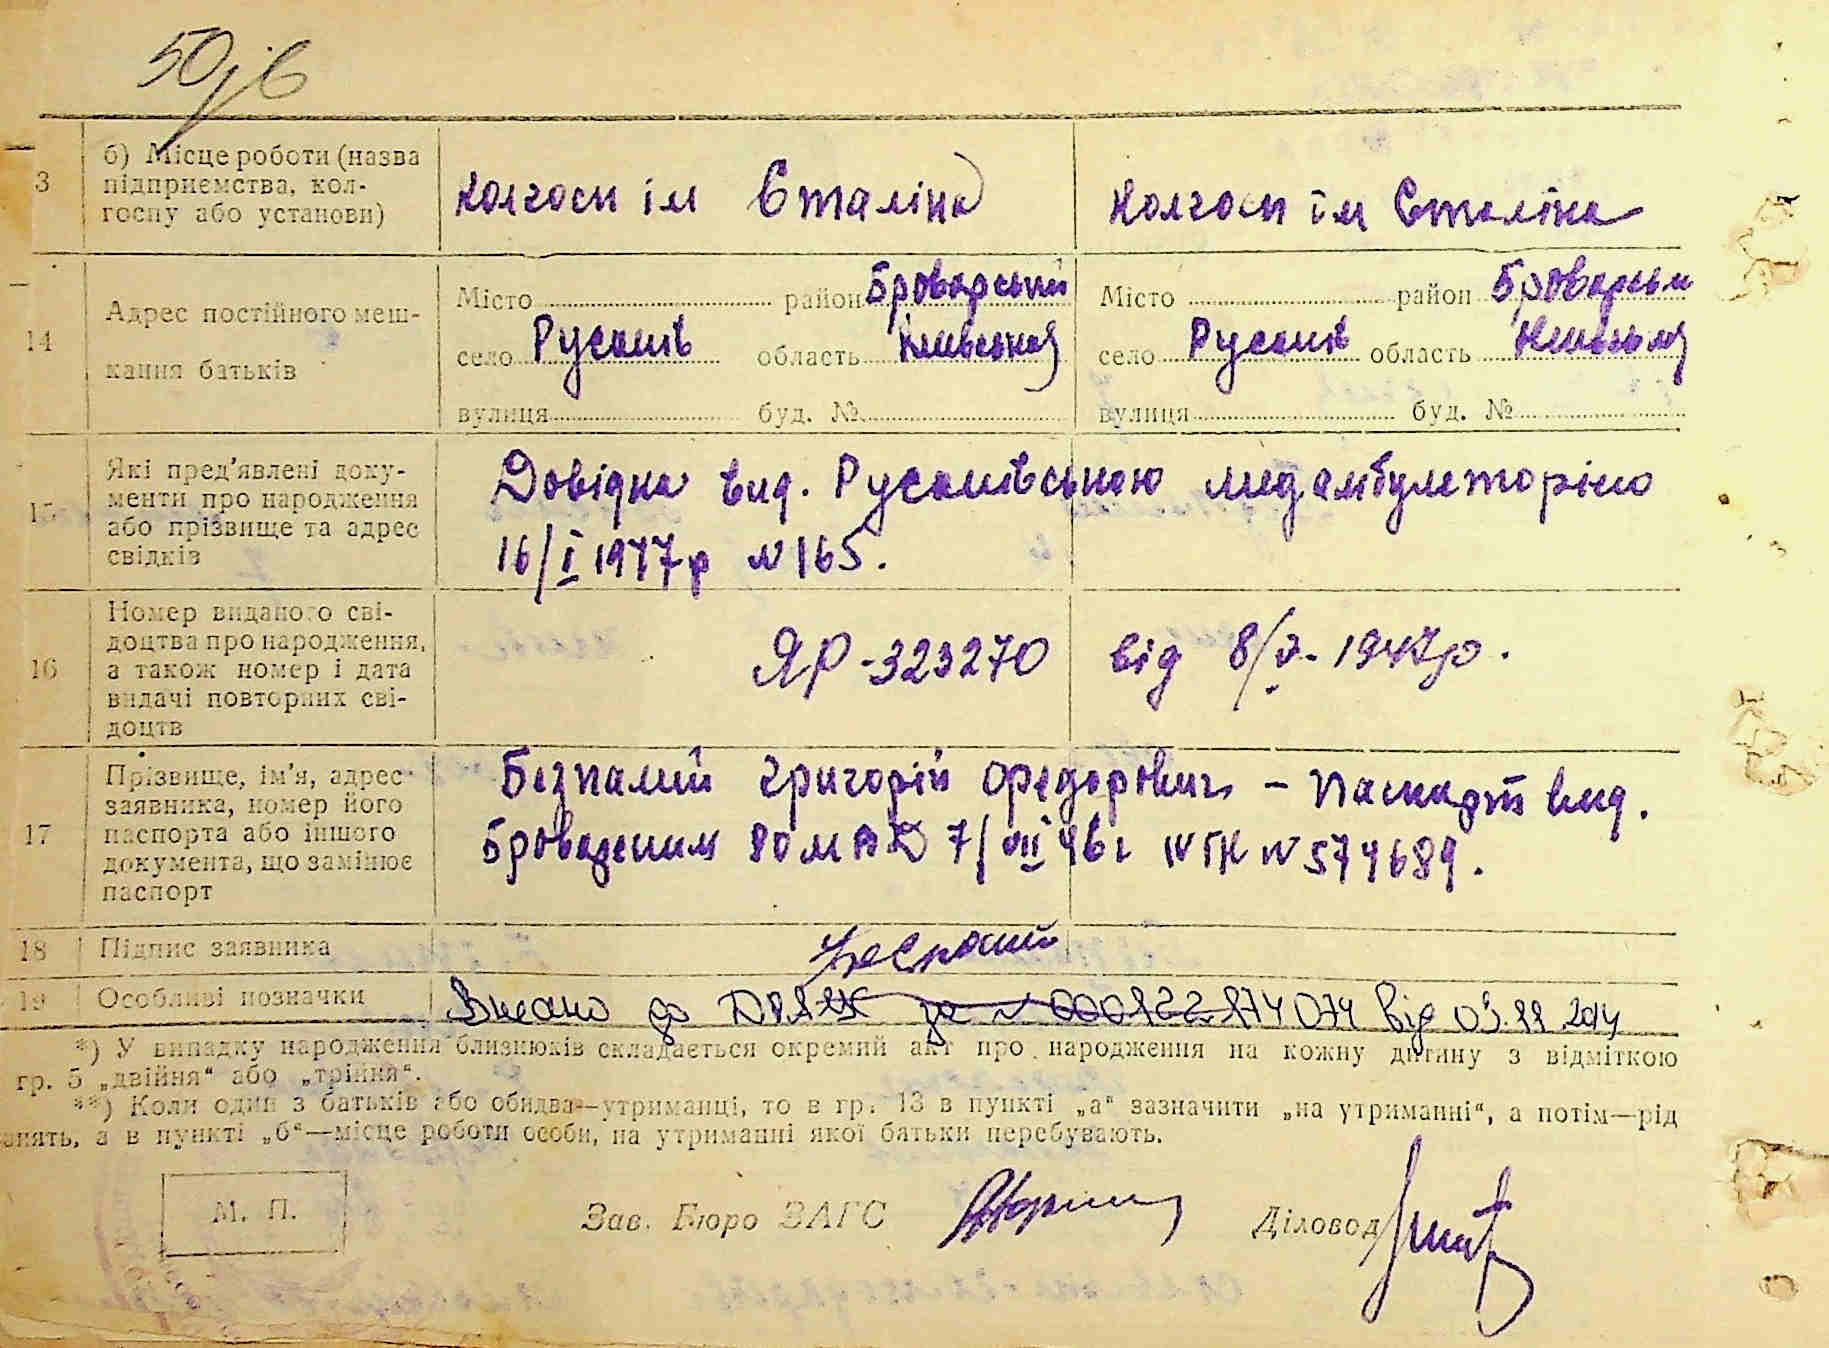 50 јв
3
б) Місце роботи (назва
підприємства, кол-
госпу або установи)
колгосп ім Сталіна
колгосп ім Сталіна
14
Адрес постійного меш-
кання батьків
Місто район Броварський
село Русанів область Київська
вулиця буд. №
Місто район Броварськ
село Русанів область Київська
вулиця буд. №
15
Які пред'явлені доку-
менти про народження
або прізвище та адрес
свідків
Довідка вид. Русанівською медамбулаторією
16/I 1947р N 165.
16
Номер виданого сві-
доцтва про народження,
а також номер і дата
видачі повторних сві-
доцтв
ЯР-323270 від 8/V-1947р.
17
Прізвище, ім'я, адрес
заявника, номер його
паспорта або іншого
документа, що замінює
паспорт
Безпалий Григорій Федорович – паспорт вид.
Броварським РОМВД 7/VII 46г IV ГК N 574689.
18
Підпис заявника
Безпалий
19
Особливі позначки
Внесано до ДРАЦС за N 000122874074 від 03.11.2014
*) У випадку народження близнюків складається окремий акт про народження на кожну дитину з відміткою
гр. 5 „двійня" або „трійня".
**) Коли один з батьків або обидва—утриманці, то в гр. 13 в пункті „а" зазначити „на утриманні", а потім—рід
анять, а в пункті „б"—місце роботи особи, на утриманні якої батьки перебувають.
М. П.
Зав. Бюро ЗАГС
Діловод